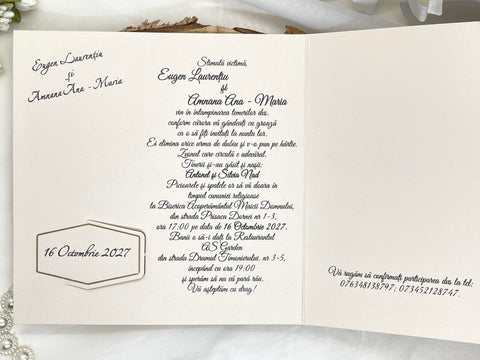 Eugen Laurențiu
și
Amnana Ana - Maria
16 Octombrie 2027
Stimată victimă,
Eugen Laurențiu
și
Amnana Ana - Maria
vin în întâmpinarea temerilor das.
conform cărora vă gândeați cu groază
ca o să fiți invitați la nunta lor.
Ei elimina orice urma de dubiu și v-o pun pe hârtie.
Zvonul care circulă e adevărat.
Tinerii și-au găsit și nașii:
Antonel și Silvia Nad
Picioarele și spatele or să vă doara în
timpul cununiei religioase
la Biserica Acoperământul Maicii Domnului,
din strada Prisaca Dornei nr 1-3,
ora 17.00 pe data de 16 Octombrie 2027.
Banii o să-i dați la Restaurantul
AS Garden
din strada Drumul Timonierului. nr 3-5,
începând cu ora 19:00
și sperăm să nu vă pară rău.
Vă așteptăm cu drag!
Vă rugăm să confirmați participarea das la tel:
076348138797; 073452128747.